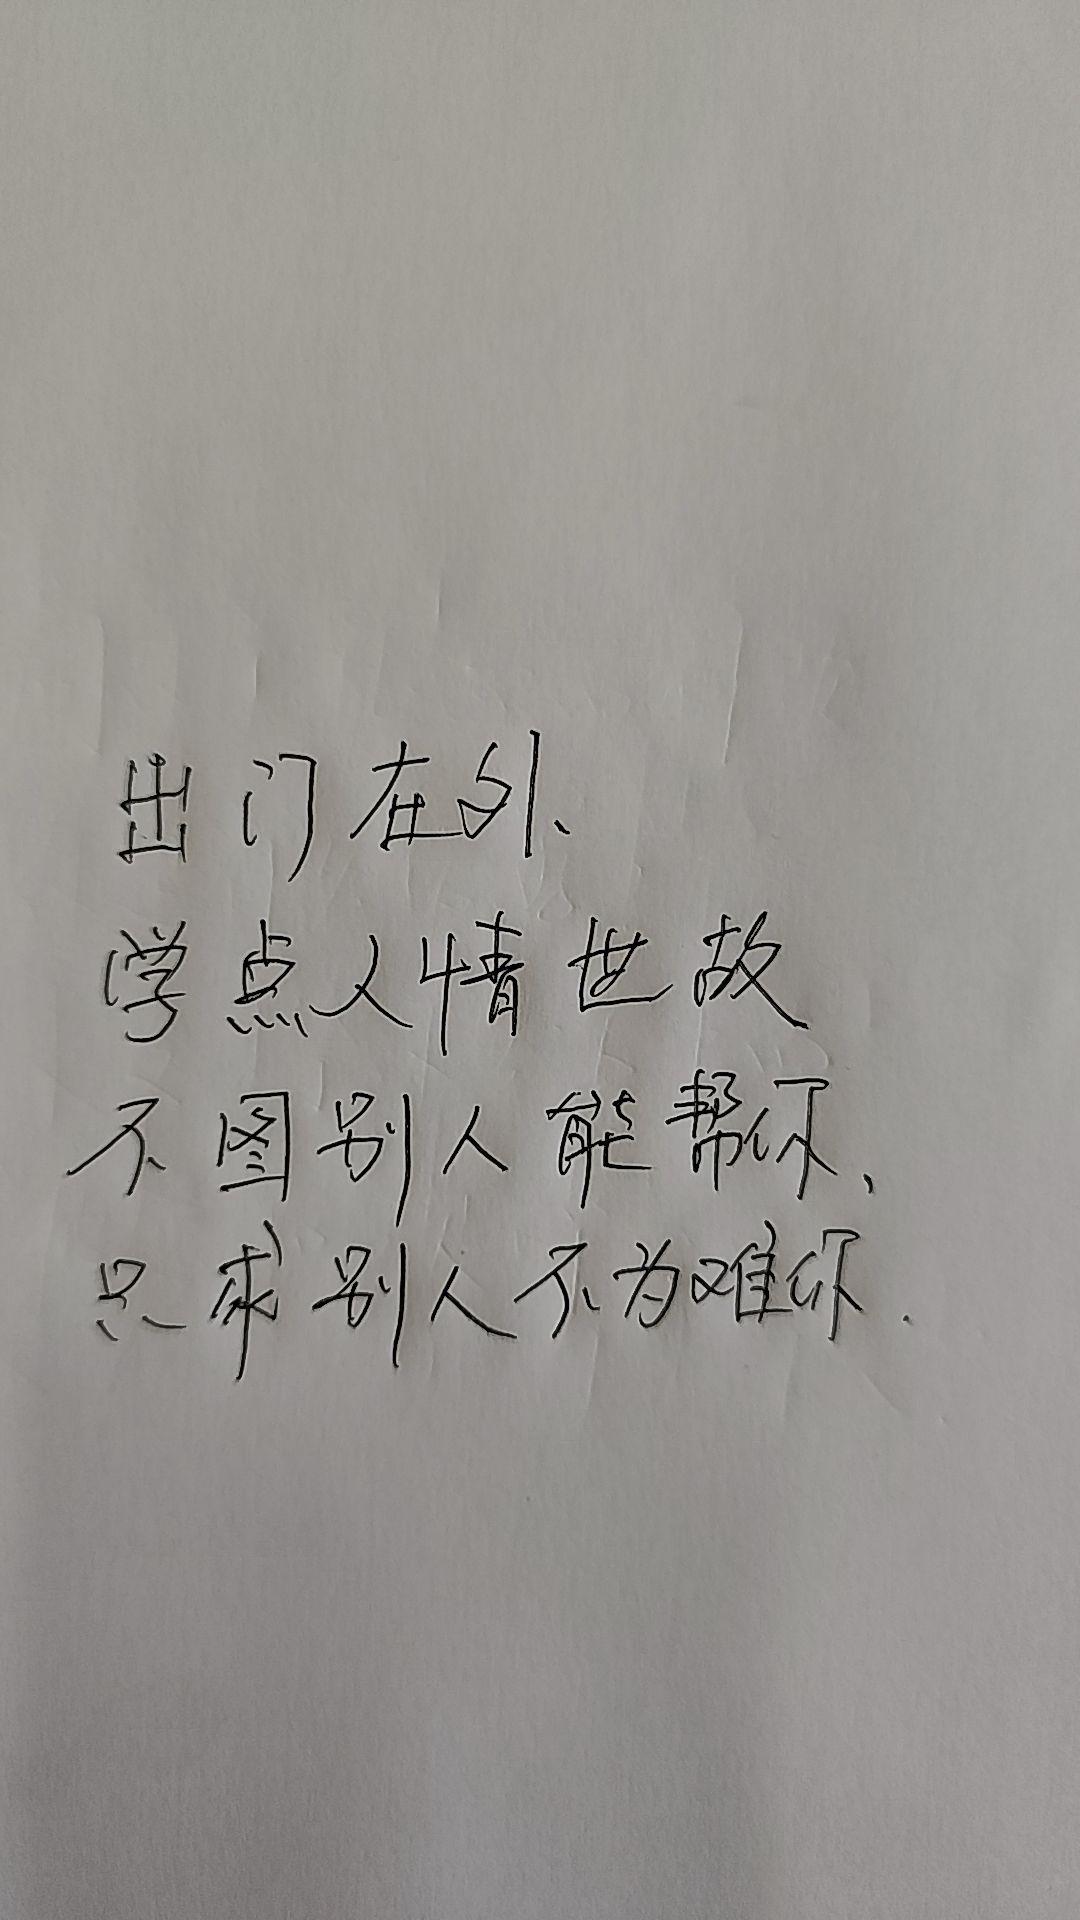 出门在外、
学点人情世故
不图别人能帮你、
只求别人不为难你.